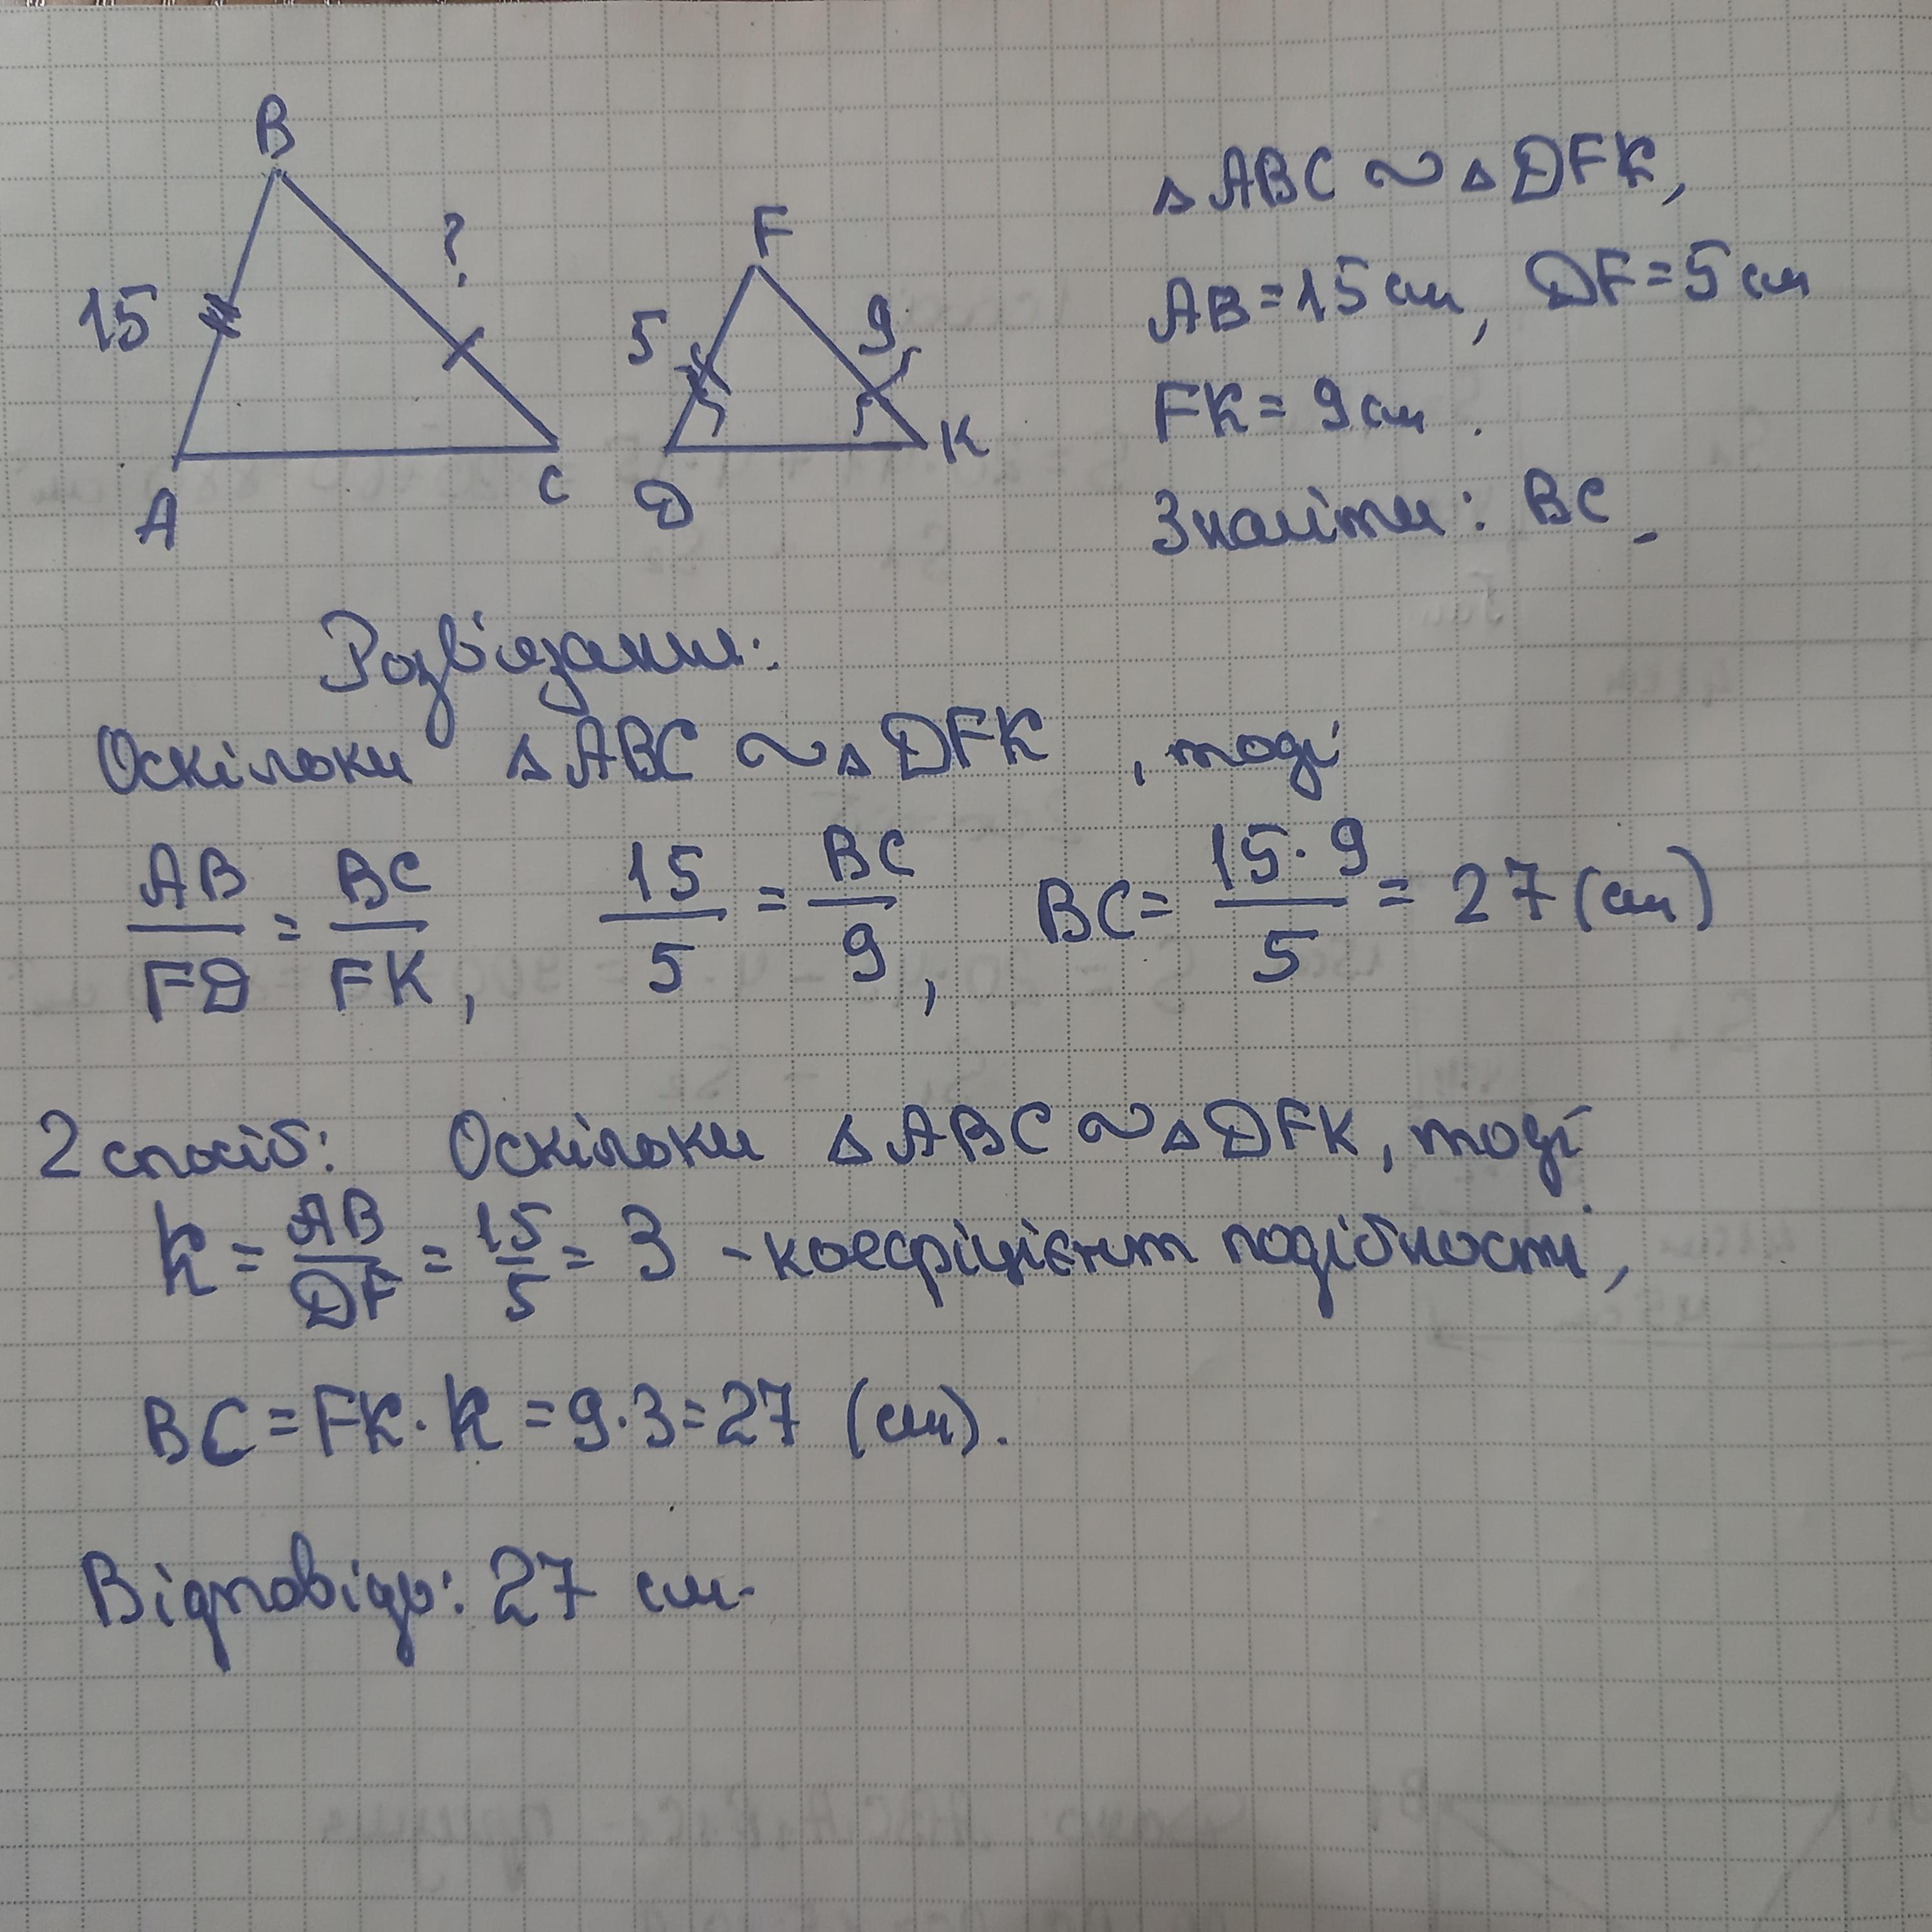 B
?
15
A
C
F
5
9
D
K
△ABC ∾ △DFK,
AB=15см, DF=5см
FK=9см.
Знайти: BC.
Розв'язання:
Оскільки △ABC ∾ △DFK, тоді
AB/FD = BC/FK, 15/5 = BC/9, BC= 15·9/5 = 27(см)
2 спосіб: Оскільки △ABC ∾ △DFK, тоді
k = AB/DF = 15/5 = 3 - коефіцієнт подібності,
BC=FK·k=9·3=27 (см).
Відповідь: 27 см.